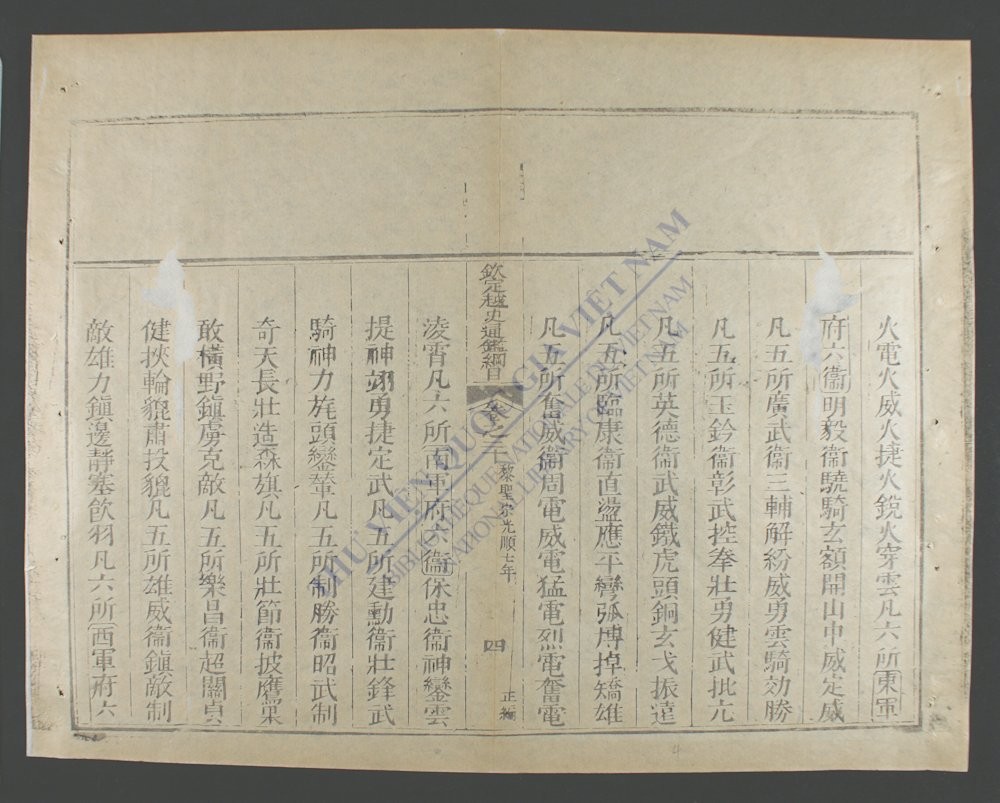 火電火威火捷火銳火穿雲凡六所東軍
府六衞明毅衞驍騎玄額開山中威定威
凡五所廣武衞三輔解紛威勇雲騎効勝
凡五所玉鈐衞彰武控拳壯勇健武批亢
凡五所英德衞武威鐵虎頭銅玄戈振遠
凡五所臨康衞直盪應平彎弧摶掉矯雄
凡五所奮威衞周電威電猛電烈電奮電
欽定越史通鑑綱目 正編 卷之二十 黎聖宗光順七年 四
凌霄凡六所南軍府六衞保忠衞神鑾雲
提神翊勇捷定武凡五所建勳衞壯鋒武
騎神力旄頭鑾輦凡五所制勝衞昭武制
奇天長壯造森旗凡五所壯節衞披鷹葉
敢橫野鎮虜克敵凡五所樂昌衞超關貞
健挾輪貔肅投貔凡五所雄威衞鎮敵制
敵雄力鎮邊靜塞飲羽凡六所西軍府六
THƯ VIỆN QUỐC GIA VIỆT NAM
BIBLIOTHÈQUE NATIONALE DU VIETNAM
NATIONAL LIBRARY OF VIETNAM